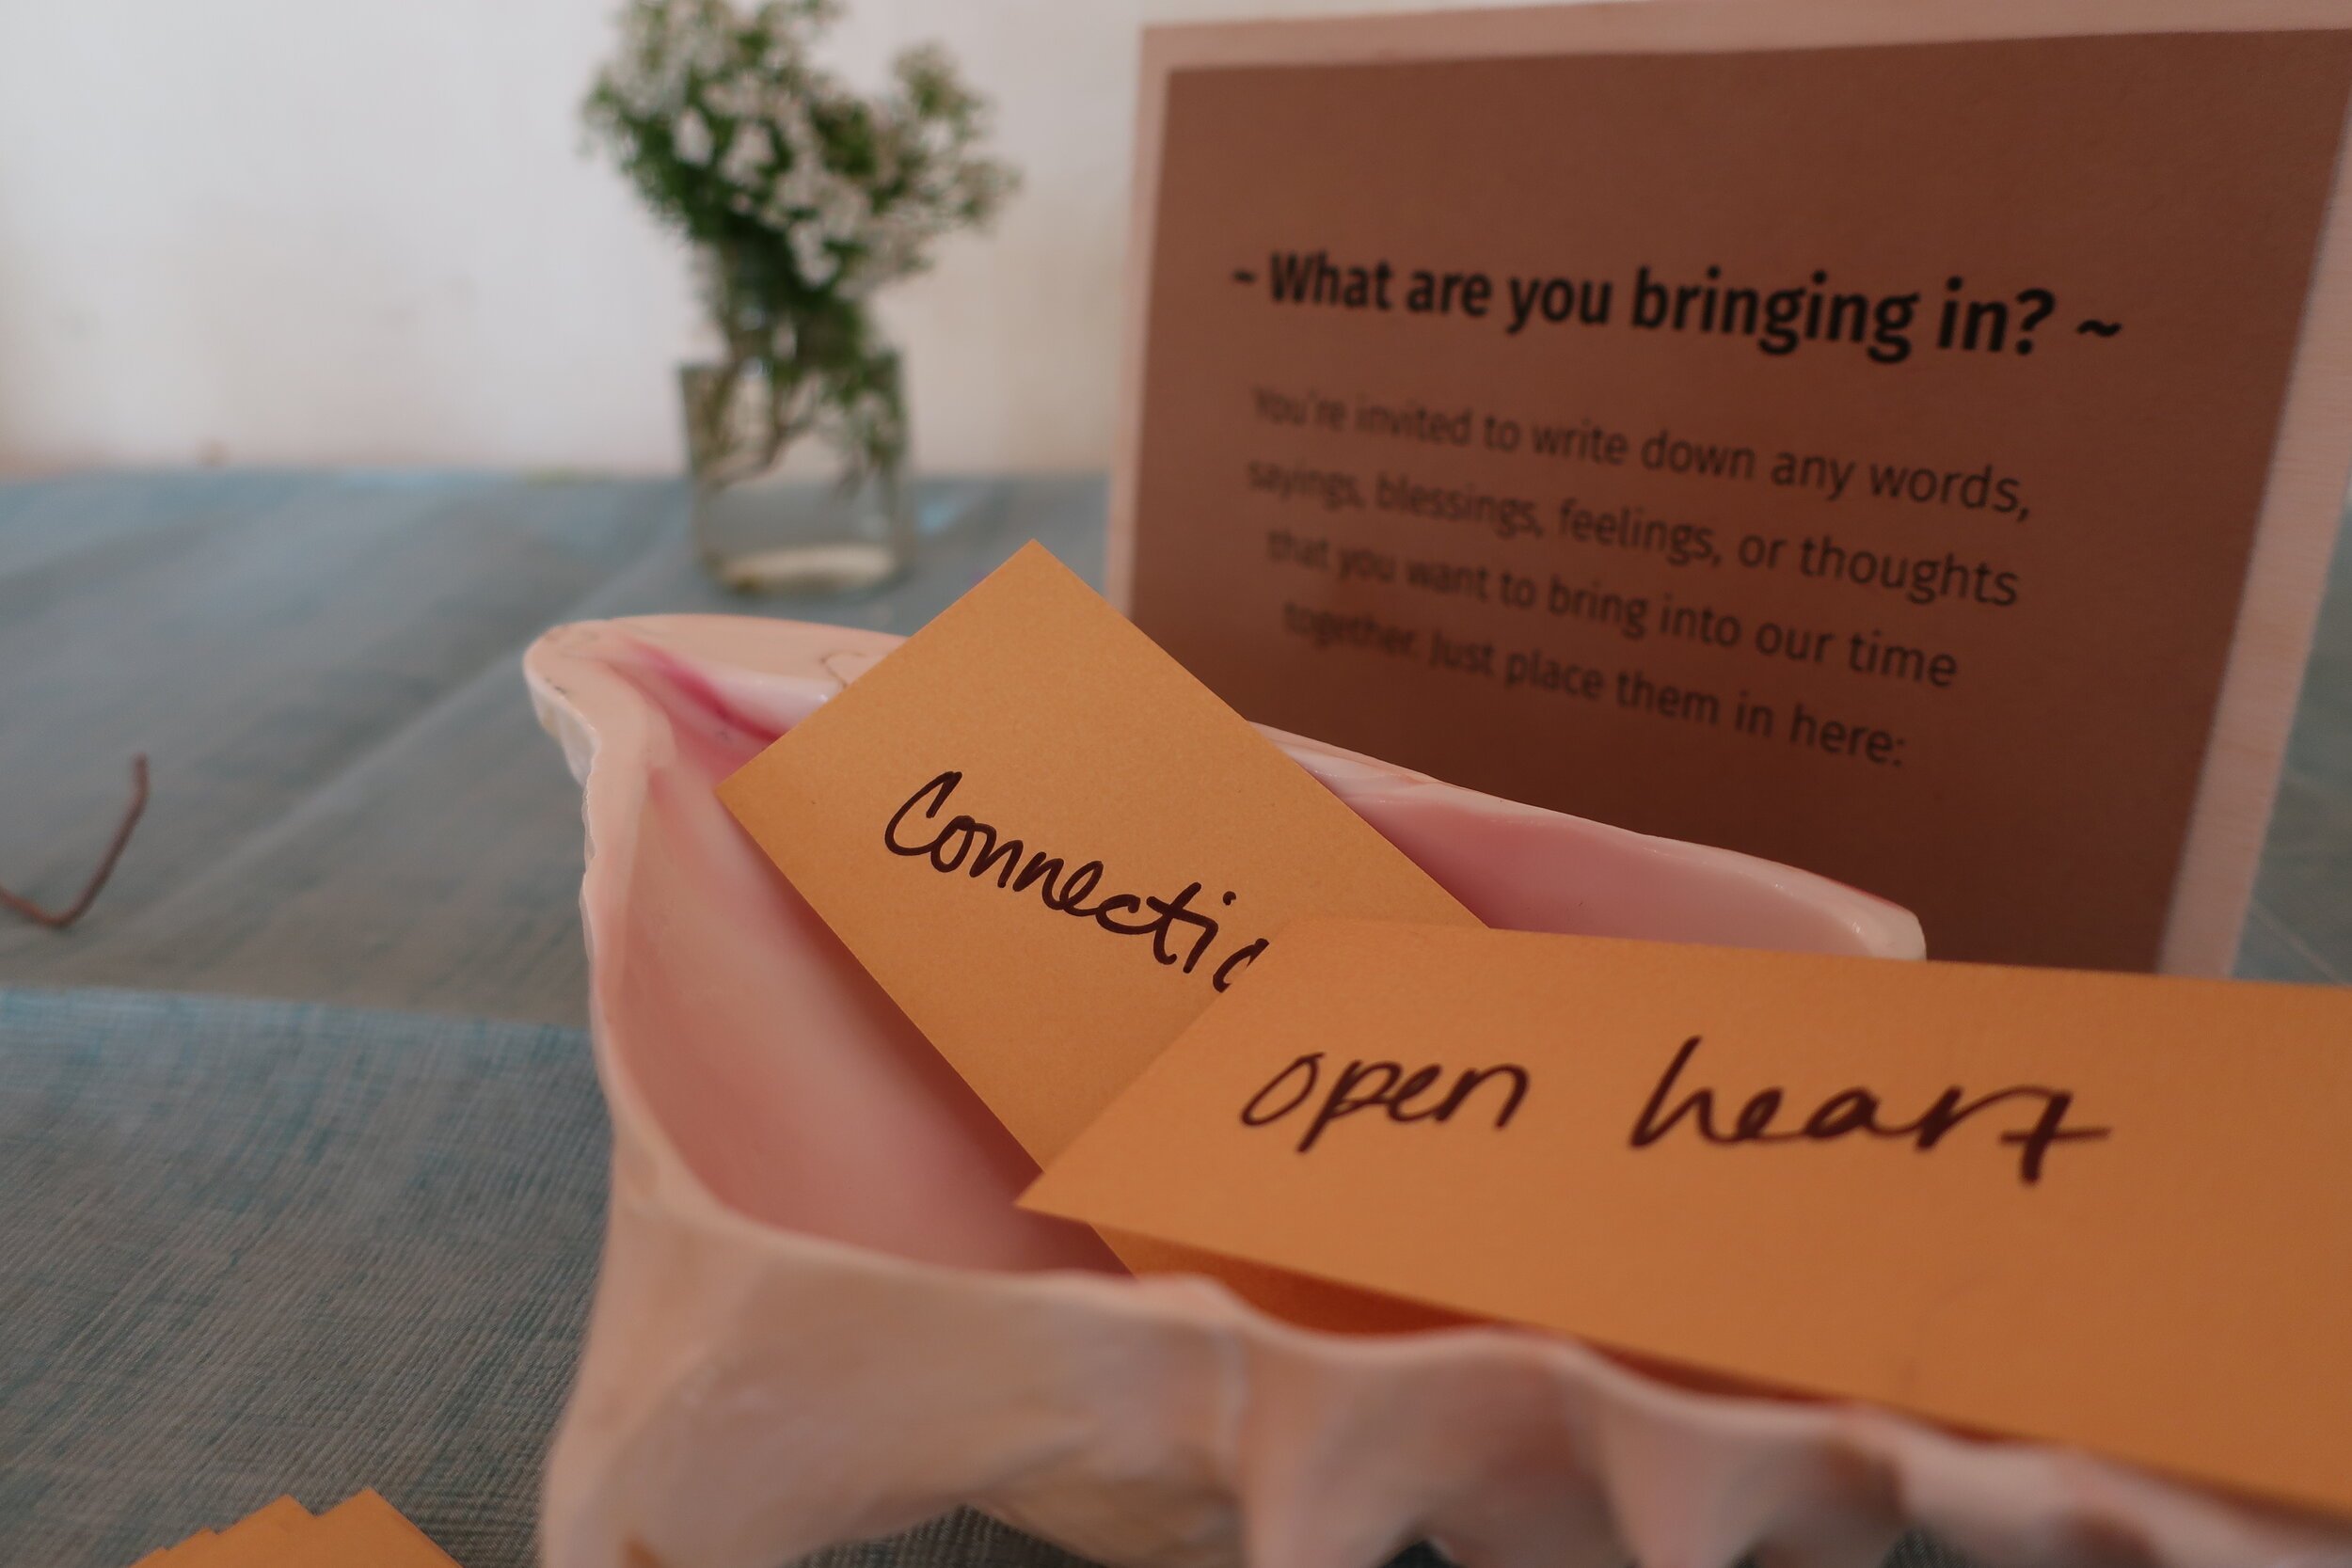 ~ What are you bringing in? ~
You're invited to write down any words,
sayings, blessings, feelings, or thoughts
that you want to bring into our time
together. Just place them in here:
Connectio
open heart